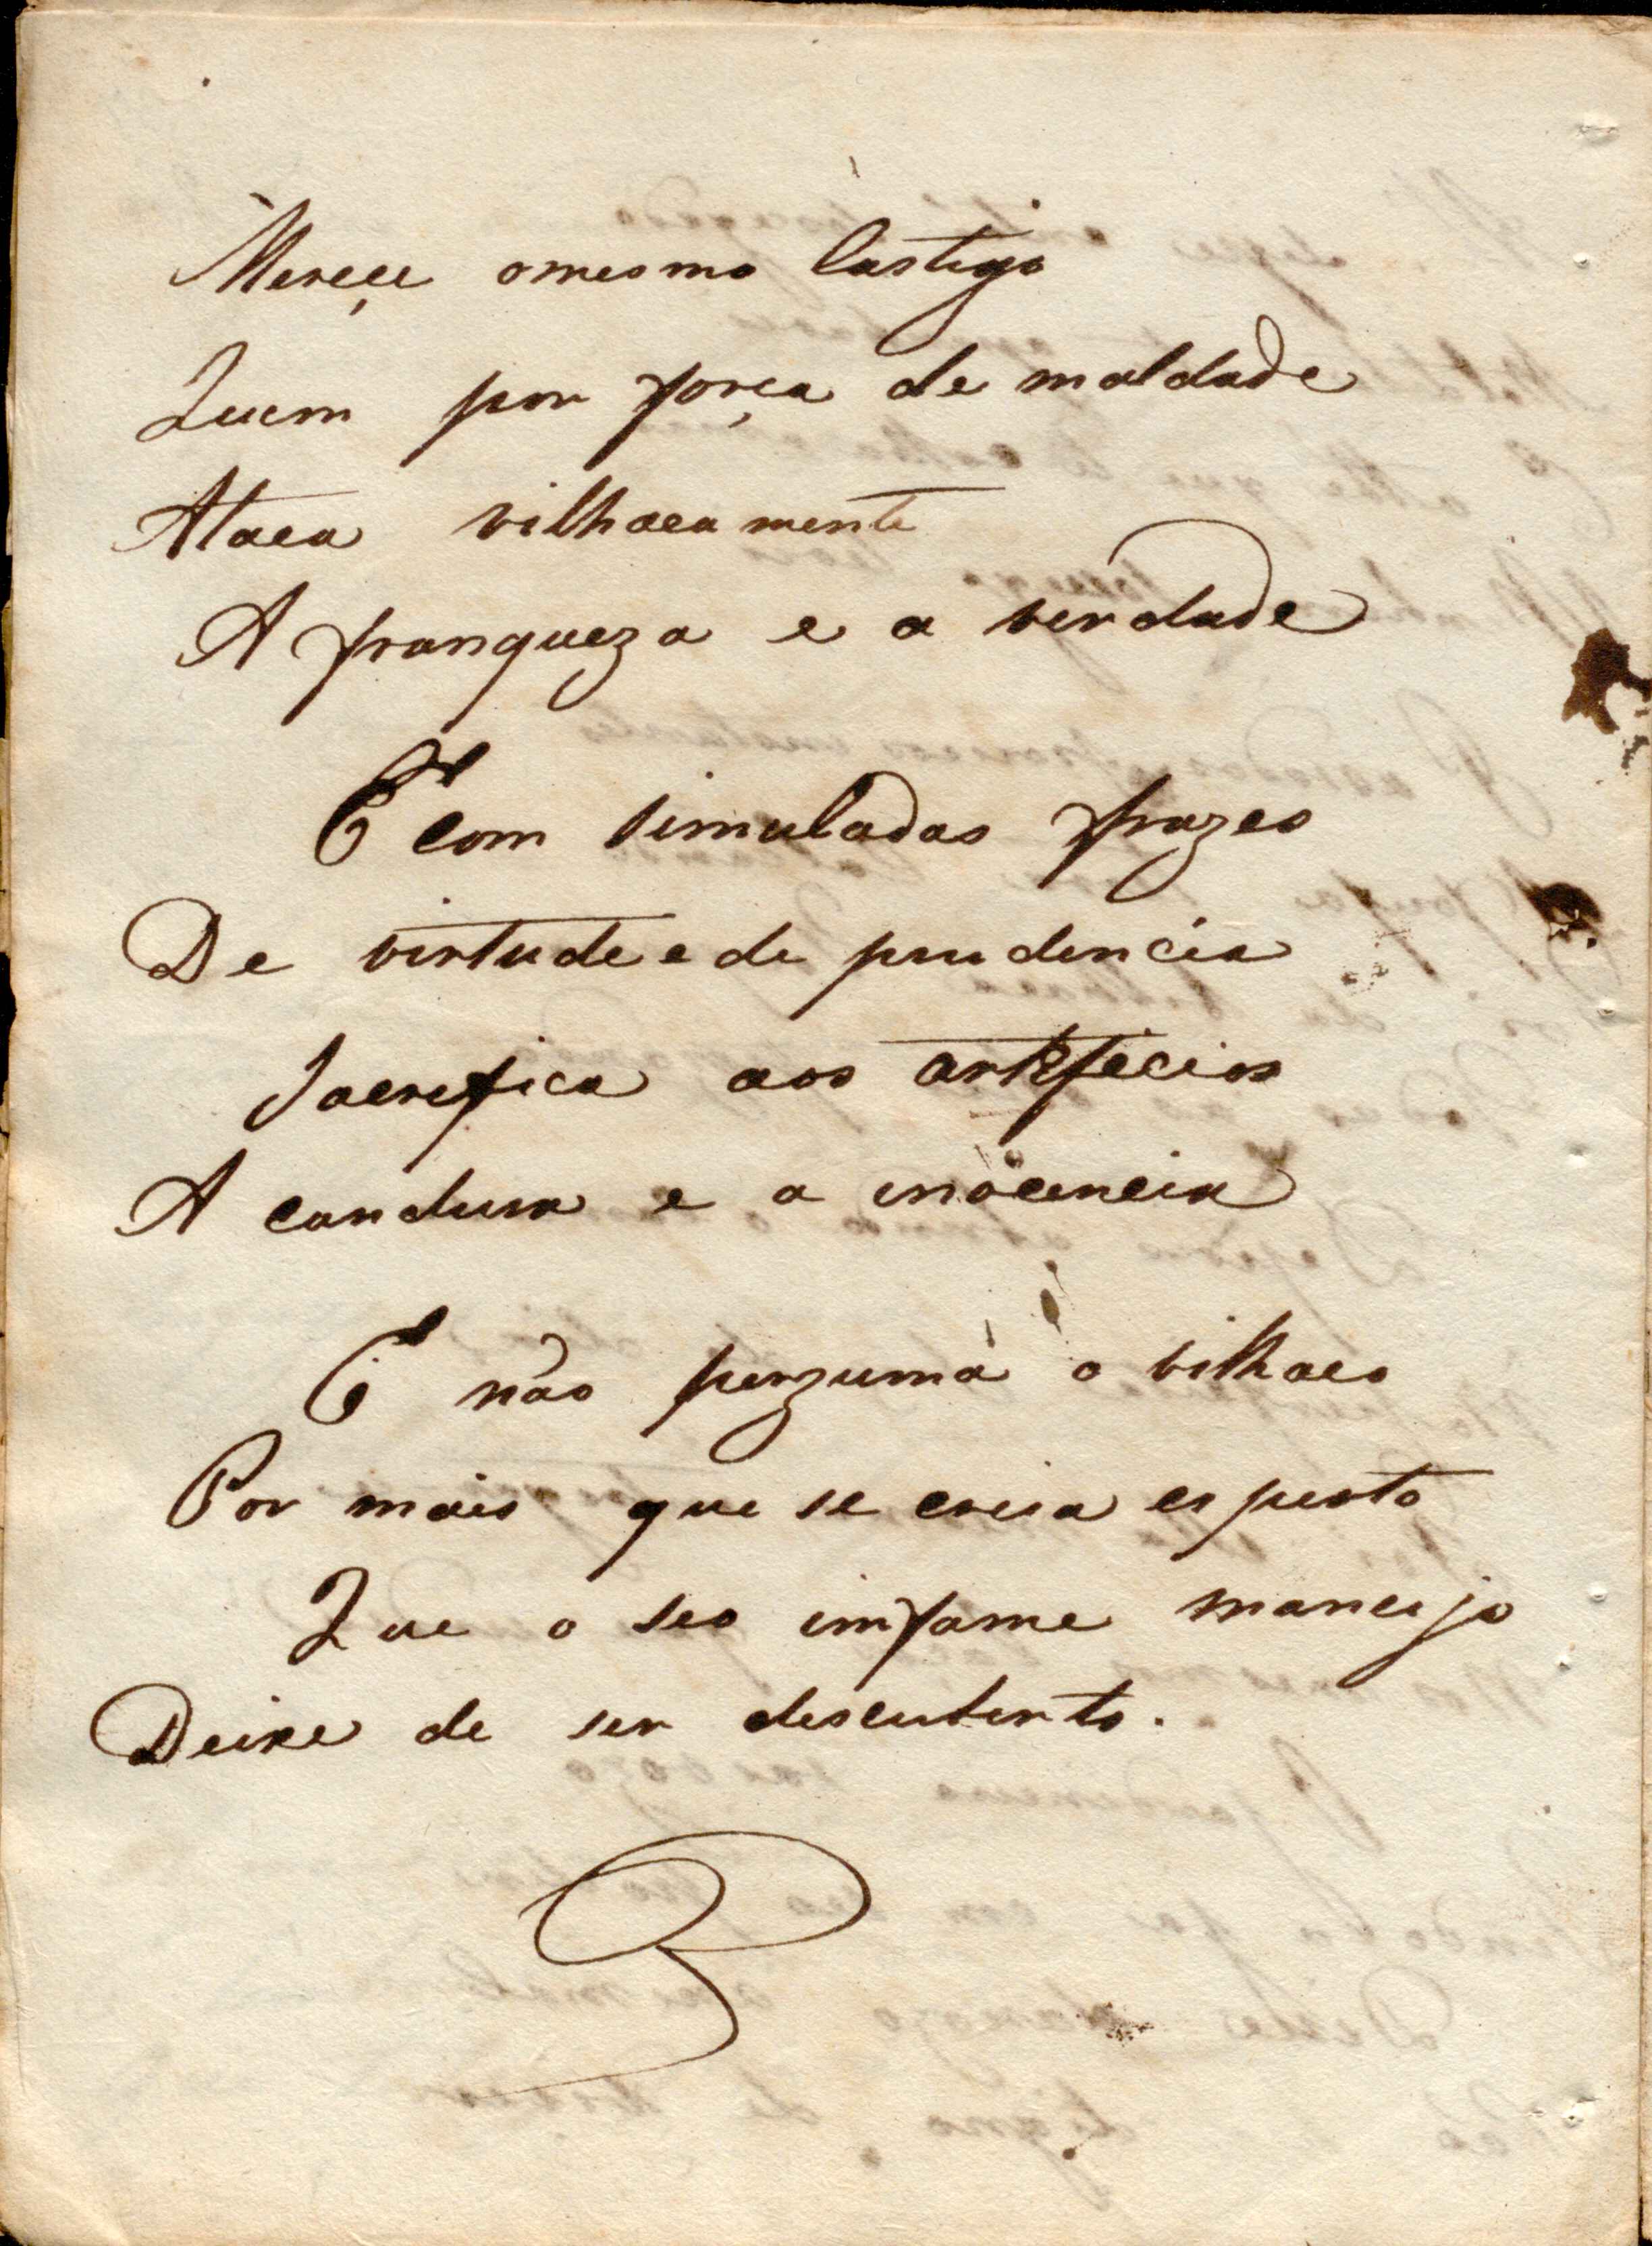 Mereçe omesmo Castigo
Quem por força de maldade
Ataca vilhaca mente
A franqueza e a verdade
E com simuladas frazes
De virtude e de prudencia
Sacrefica aos artefecios
A candura e a inocencia
E não perzuma o vilhaco
Por mais que se creia esperto
Que o seo imfame maneijo
Deixe de ser descuberto.